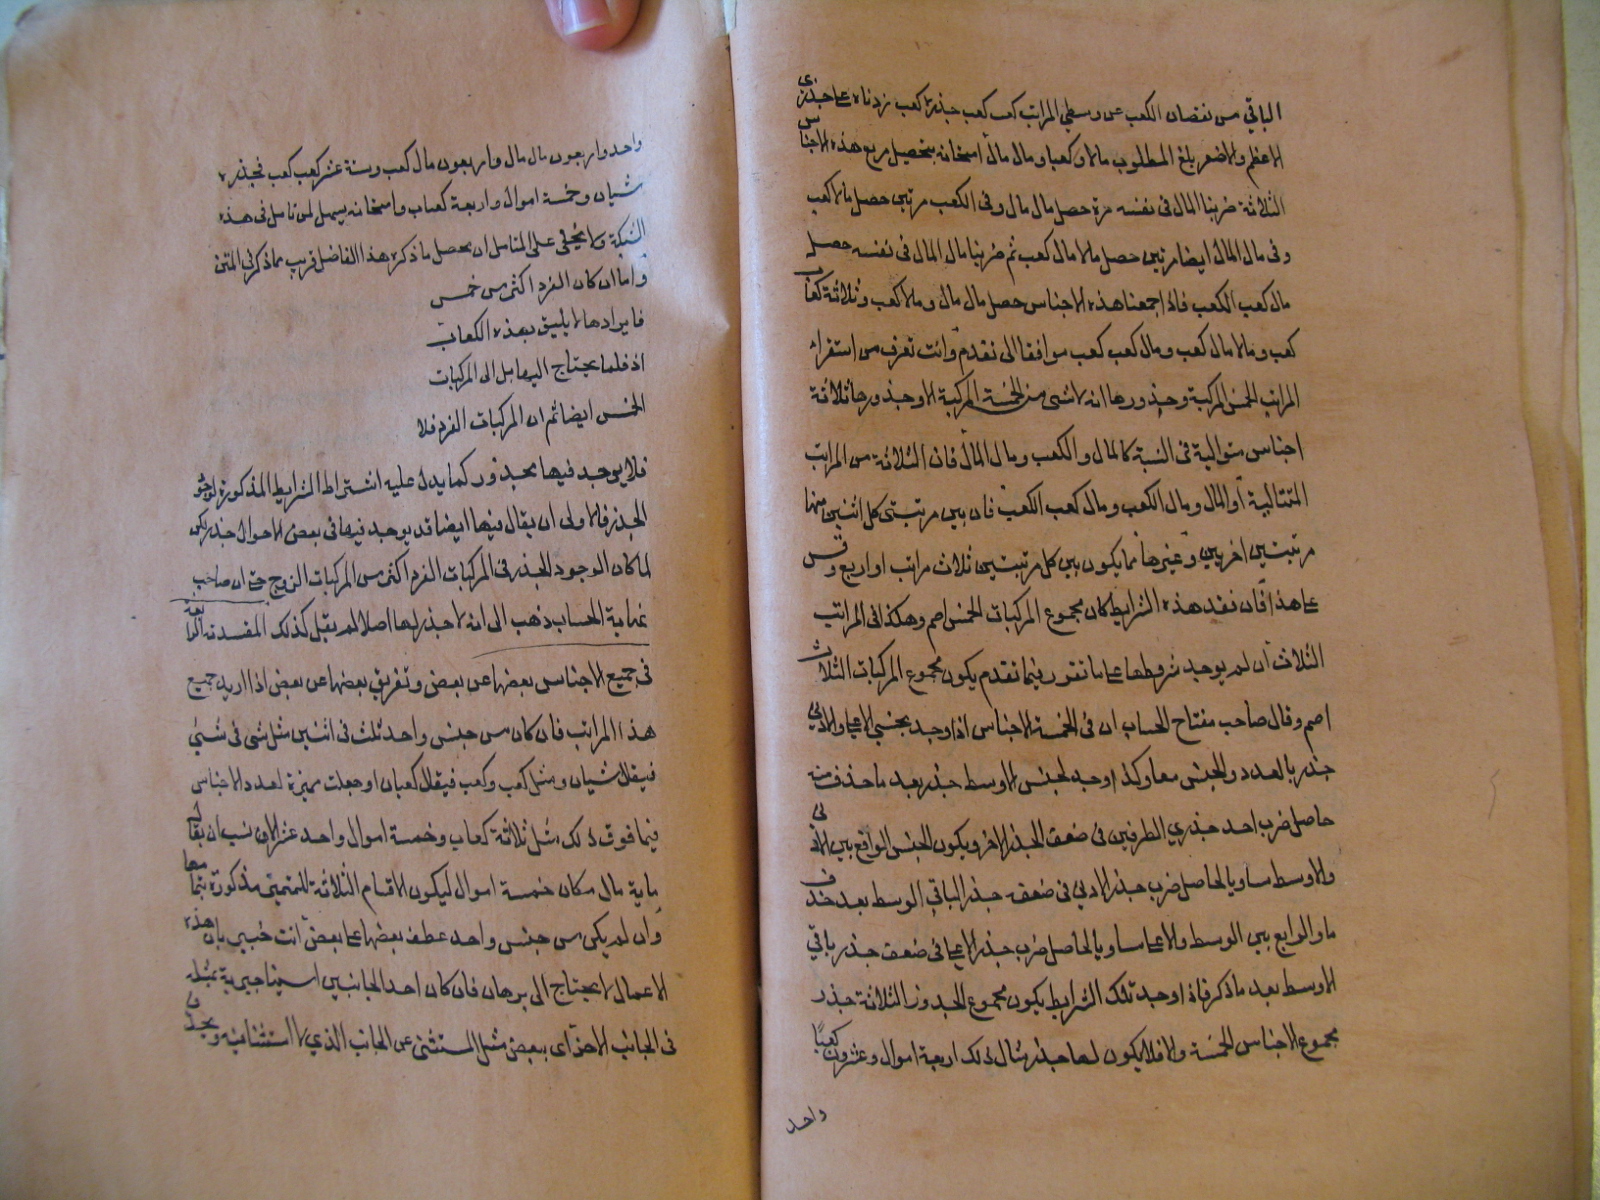 الباقي من نقصان الكعب عن وسطي المراتب كعب كعب جذره كعب زدناه على جذري
الاعظم والاصغر بلغ المطلوب مالا وكعبا ومال مال امتحانه بتحصيل مربع هذه الاجناس
الثلاثة ضربنا المال في نفسه مرة حصل مال مال وفي الكعب مرتين حصل مالا كعب
وفي مال المال ايضا مرتين حصل مالا مال كعب ثم ضربنا مال المال في نفسه حصل
مال كعب الكعب فاذا جمعنا هذه الاجناس حصل مال مال ومالا كعب وثلاثة كعاب
كعب ومالا مال كعب ومال كعب كعب موافقا الى نقدم وانت تعرف من استقراء
المراتب الخمس المركبة وجذورها انه لا شي من الخمسة المركبة الا وجذورها ثلاثة
اجناس متوالية في النسبة كالمال والكعب ومال المال فان الثلاثة من المراتب
المتتالية او المال ومال الكعب ومال كعب الكعب فان بين مرتبتي كل اثنين منها
مرتبتين اخريين وغيرها مما يكون بين كل مرتبتين ثلاث مراتب او اربع وقس
على هذا فان نقد هذه الشرايط كان مجموع المركبات الخمس اصم وهكذا في المراتب
الثلاث ان لم يوجد شروطها على ما تقرر فيما تقدم يكون مجموع المركبات الثلاث
اصم وقال صاحب مفتاح الحساب ان في الخمسة الاجناس اذا وجد بجنسي الاعلى والادنى
جذر بالعدد والجنس معا وكذا وجد لجنس الاوسط جذر بعد ما حذف منه
حاصل ضرب احد جذري الطرفين في ضعف الجذر الاخر ويكون الجنس الواقع بين الادنى
والاوسط مساويا لحاصل ضرب جذر الادنى في ضعف جذر الباقي الوسط بعد حذف
ما والرابع بين الوسط والاعلى مساويا لحاصل ضرب جذر الاعلى في ضعف جذر باقي
الاوسط بعد ما ذكر فاذا وجد تلك الشرايط يكون مجموع الجذور الثلاثة جذر
مجموع الاجناس الخمسة والا فلا يكون لها جذر مثال ذلك اربعة اموال وعشرون كعبا
واحد
واحد واربعون مال مال واربعون مال كعب وستة عشر كعب كعب فجذره
شيان وخمسة اموال واربعة كعاب وامتحانه يسهل لمن تامل في هذه
الشبكة ولا يخفى على المتامل ان محصل ما ذكره هذا الفاضل قريب مما ذكر في المتن
واما ان كان الفرد اكثر من خمس
فايرادها لا يليق بهذه الكعاب
اذ قلما يحتاج اليها بل الى المركبات
الخمس ايضا ثم ان المركبات الفرد فلا
فلا يوجد فيها مجذور كما يدل عليه اشتراط الشرايط المذكورة لوجود
الجذر فالاولى ان يقال فيها ايضا قد يوجد فيها في بعض الاحوال جذر لكن
لما كان الوجود للجذر في المركبات الفرد اكثر من المركبات الزوج حتى ان صاحب
نهاية الحساب ذهب الى انه لا جذر لها اصلا لم يقبل كذلك المقدمة الرابعة
في جميع الاجناس بعضها عن بعض وتفريق بعضها عن بعض اذا اريد جميع
هذا المراتب فان كان من جنس واحد ثلث في اثنين مثل شي في شيء
فيقال شيان ومثل كعب وكعب فيقال كعبان او جعلت مميزة لعدد الاجناس
فيما فوق ذلك مثل ثلاثة كعاب وخمسة اموال واحد عشر الا ان نسب ان يقال
ماية مال مكان خمسة اموال ليكون الاقسام الثلاثة للتميز مذكورة بتمامها
وان لم يكن من جنس واحد عطف بعضها على بعض انت خبير بان هذه
الاعمال لا يحتاج الى برهان فان كان احد الجانبين استثنا جبرية بمثله
في الجانب الاخر اى ببعض مثل المستثنى عن الجانب الذي لا استثنا فيه ويحذف